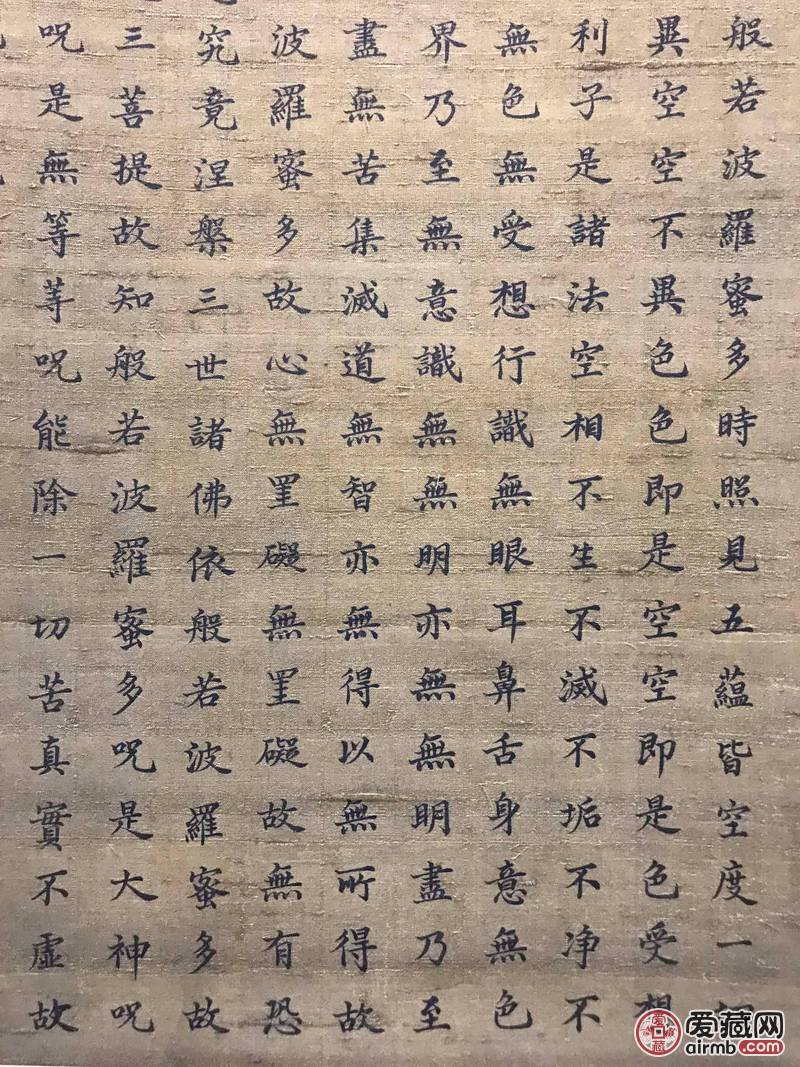 般若波羅蜜多時照見五蘊皆空度一
異空空不異色色即是空空即是色受想
利子是諸法空相不生不滅不垢不净不
無色無受想行識無眼耳鼻舌身意無色
界乃至無意識無無明亦無無明盡乃至
盡無苦集滅道無智亦無得以無所得故
波羅蜜多故心無罣礙無罣礙故無有恐
究竟涅槃三世諸佛依般若波羅蜜多故
三菩提故知般若波羅蜜多呪是大神呪
呪是無等等呪能除一切苦真實不虛故
爱藏网
airmb.com